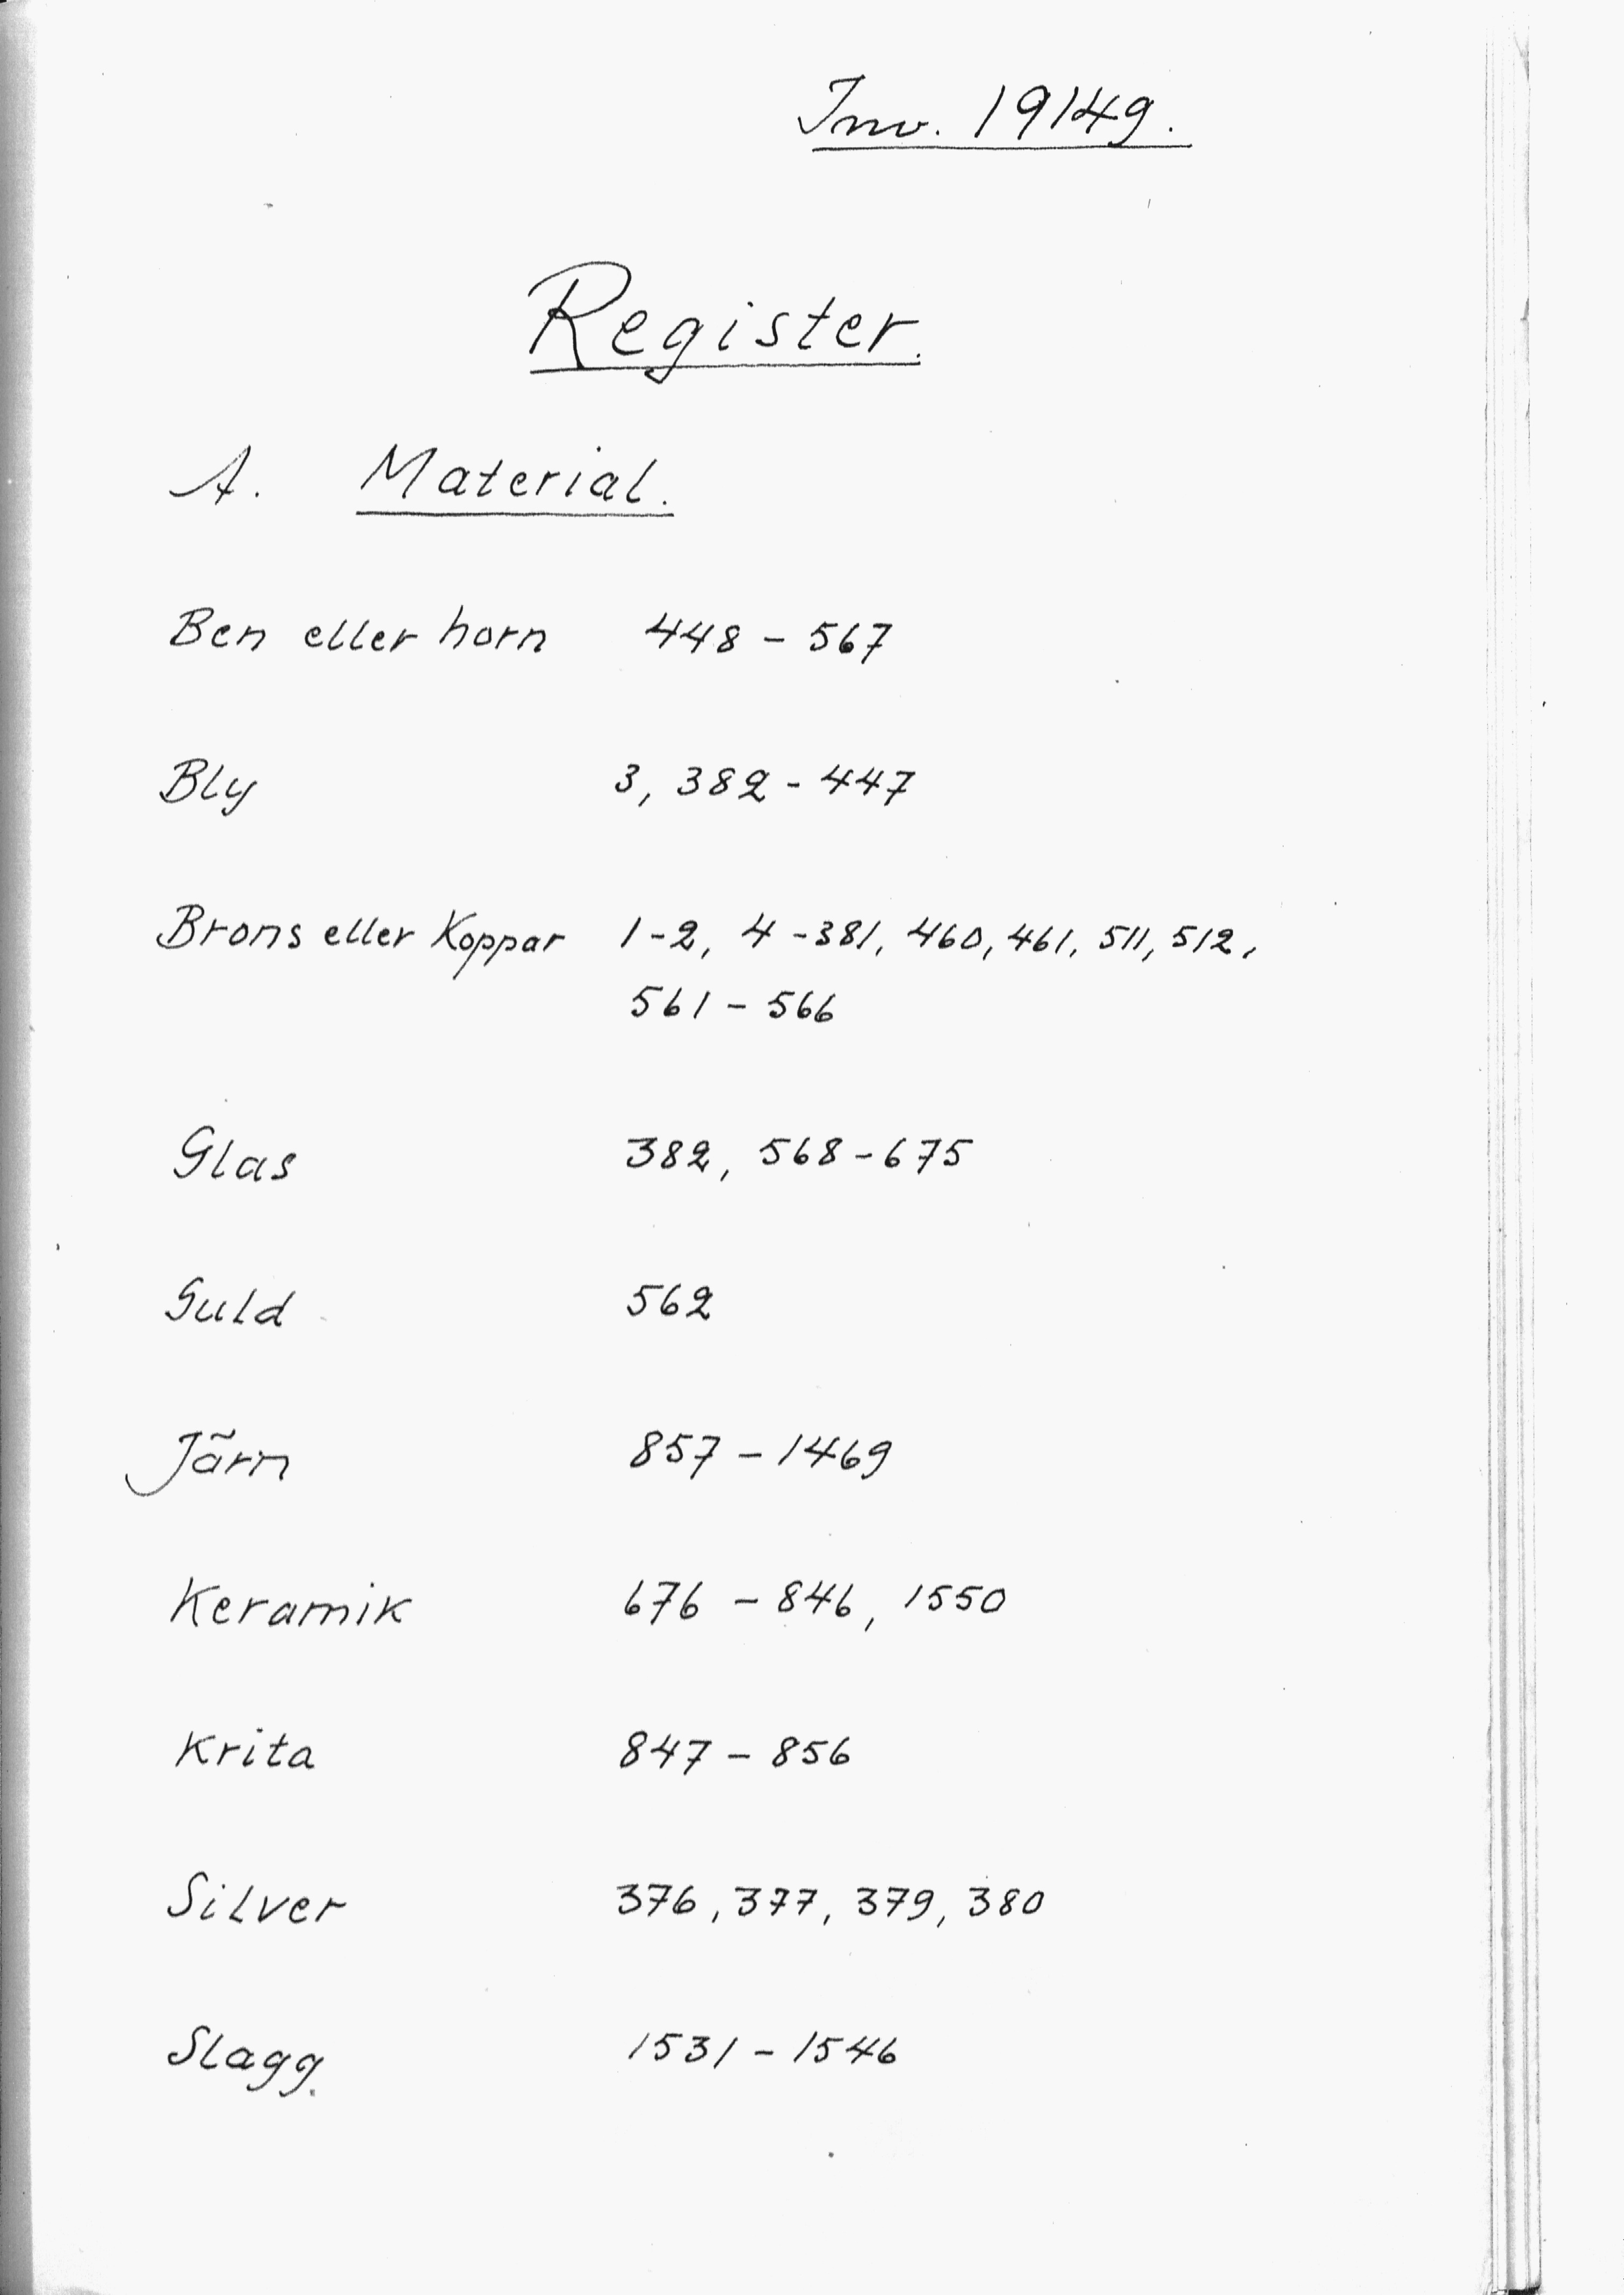 Inv. 19149.
Register.
A. Material.
Ben eller horn 448 - 567
Bly 3, 382 - 447
Brons eller Koppar 1-2, 4-381, 460, 461, 511, 512,
561 - 566
Glas 382, 568 - 675
Guld 562
Järn 857 - 1469
Keramik 676 - 846, 1550
Krita 847 - 856
Silver 376, 377, 379, 380
Slagg. 1531 - 1546